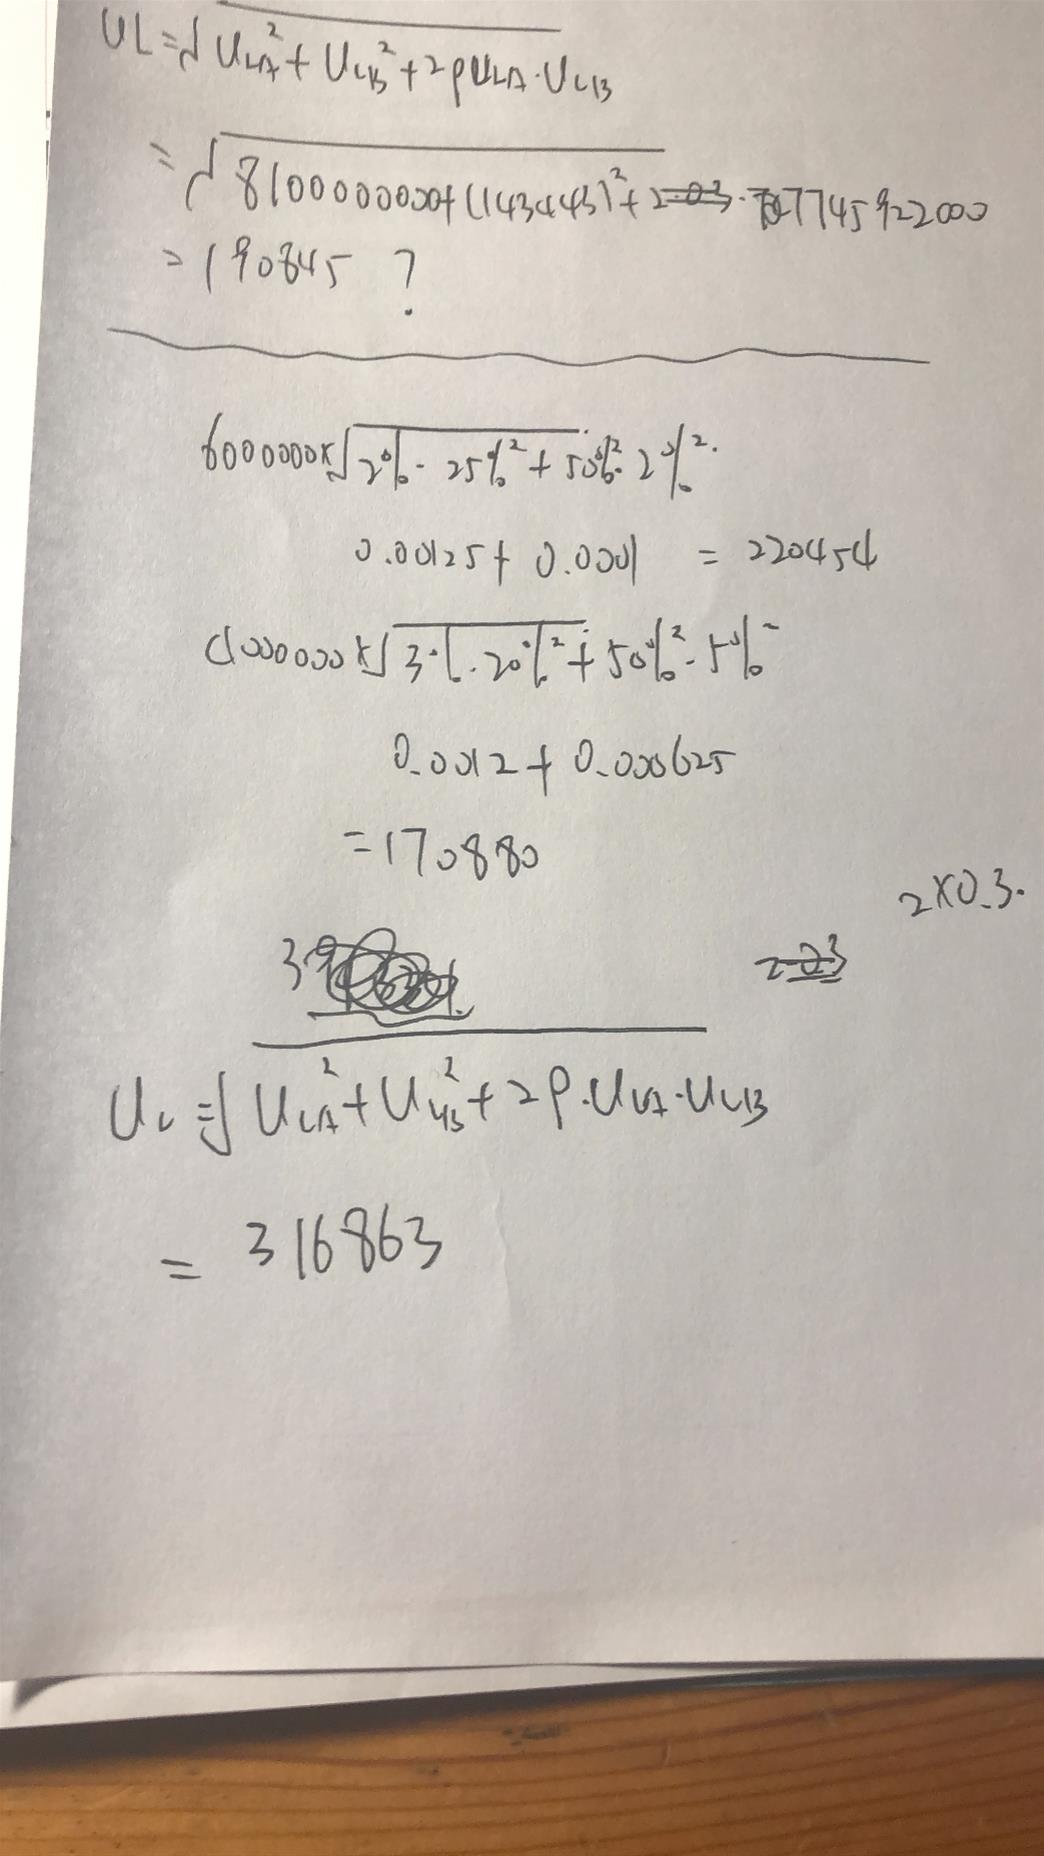 UL=√ULA²+ULB²+2ρULA·ULB
=√8100000000+(143443)²+2·03·7745922000
=190845 ?
6000000×√2%·25%²+50%²·2%²
0.00125+0.0001 =220454
4000000×√3%·20%²+50%²·5%²
0.0012+0.000625
=170880
2×0.3.
2·03
UL=√ULA²+ULB²+2ρ·ULA·ULB
= 316863